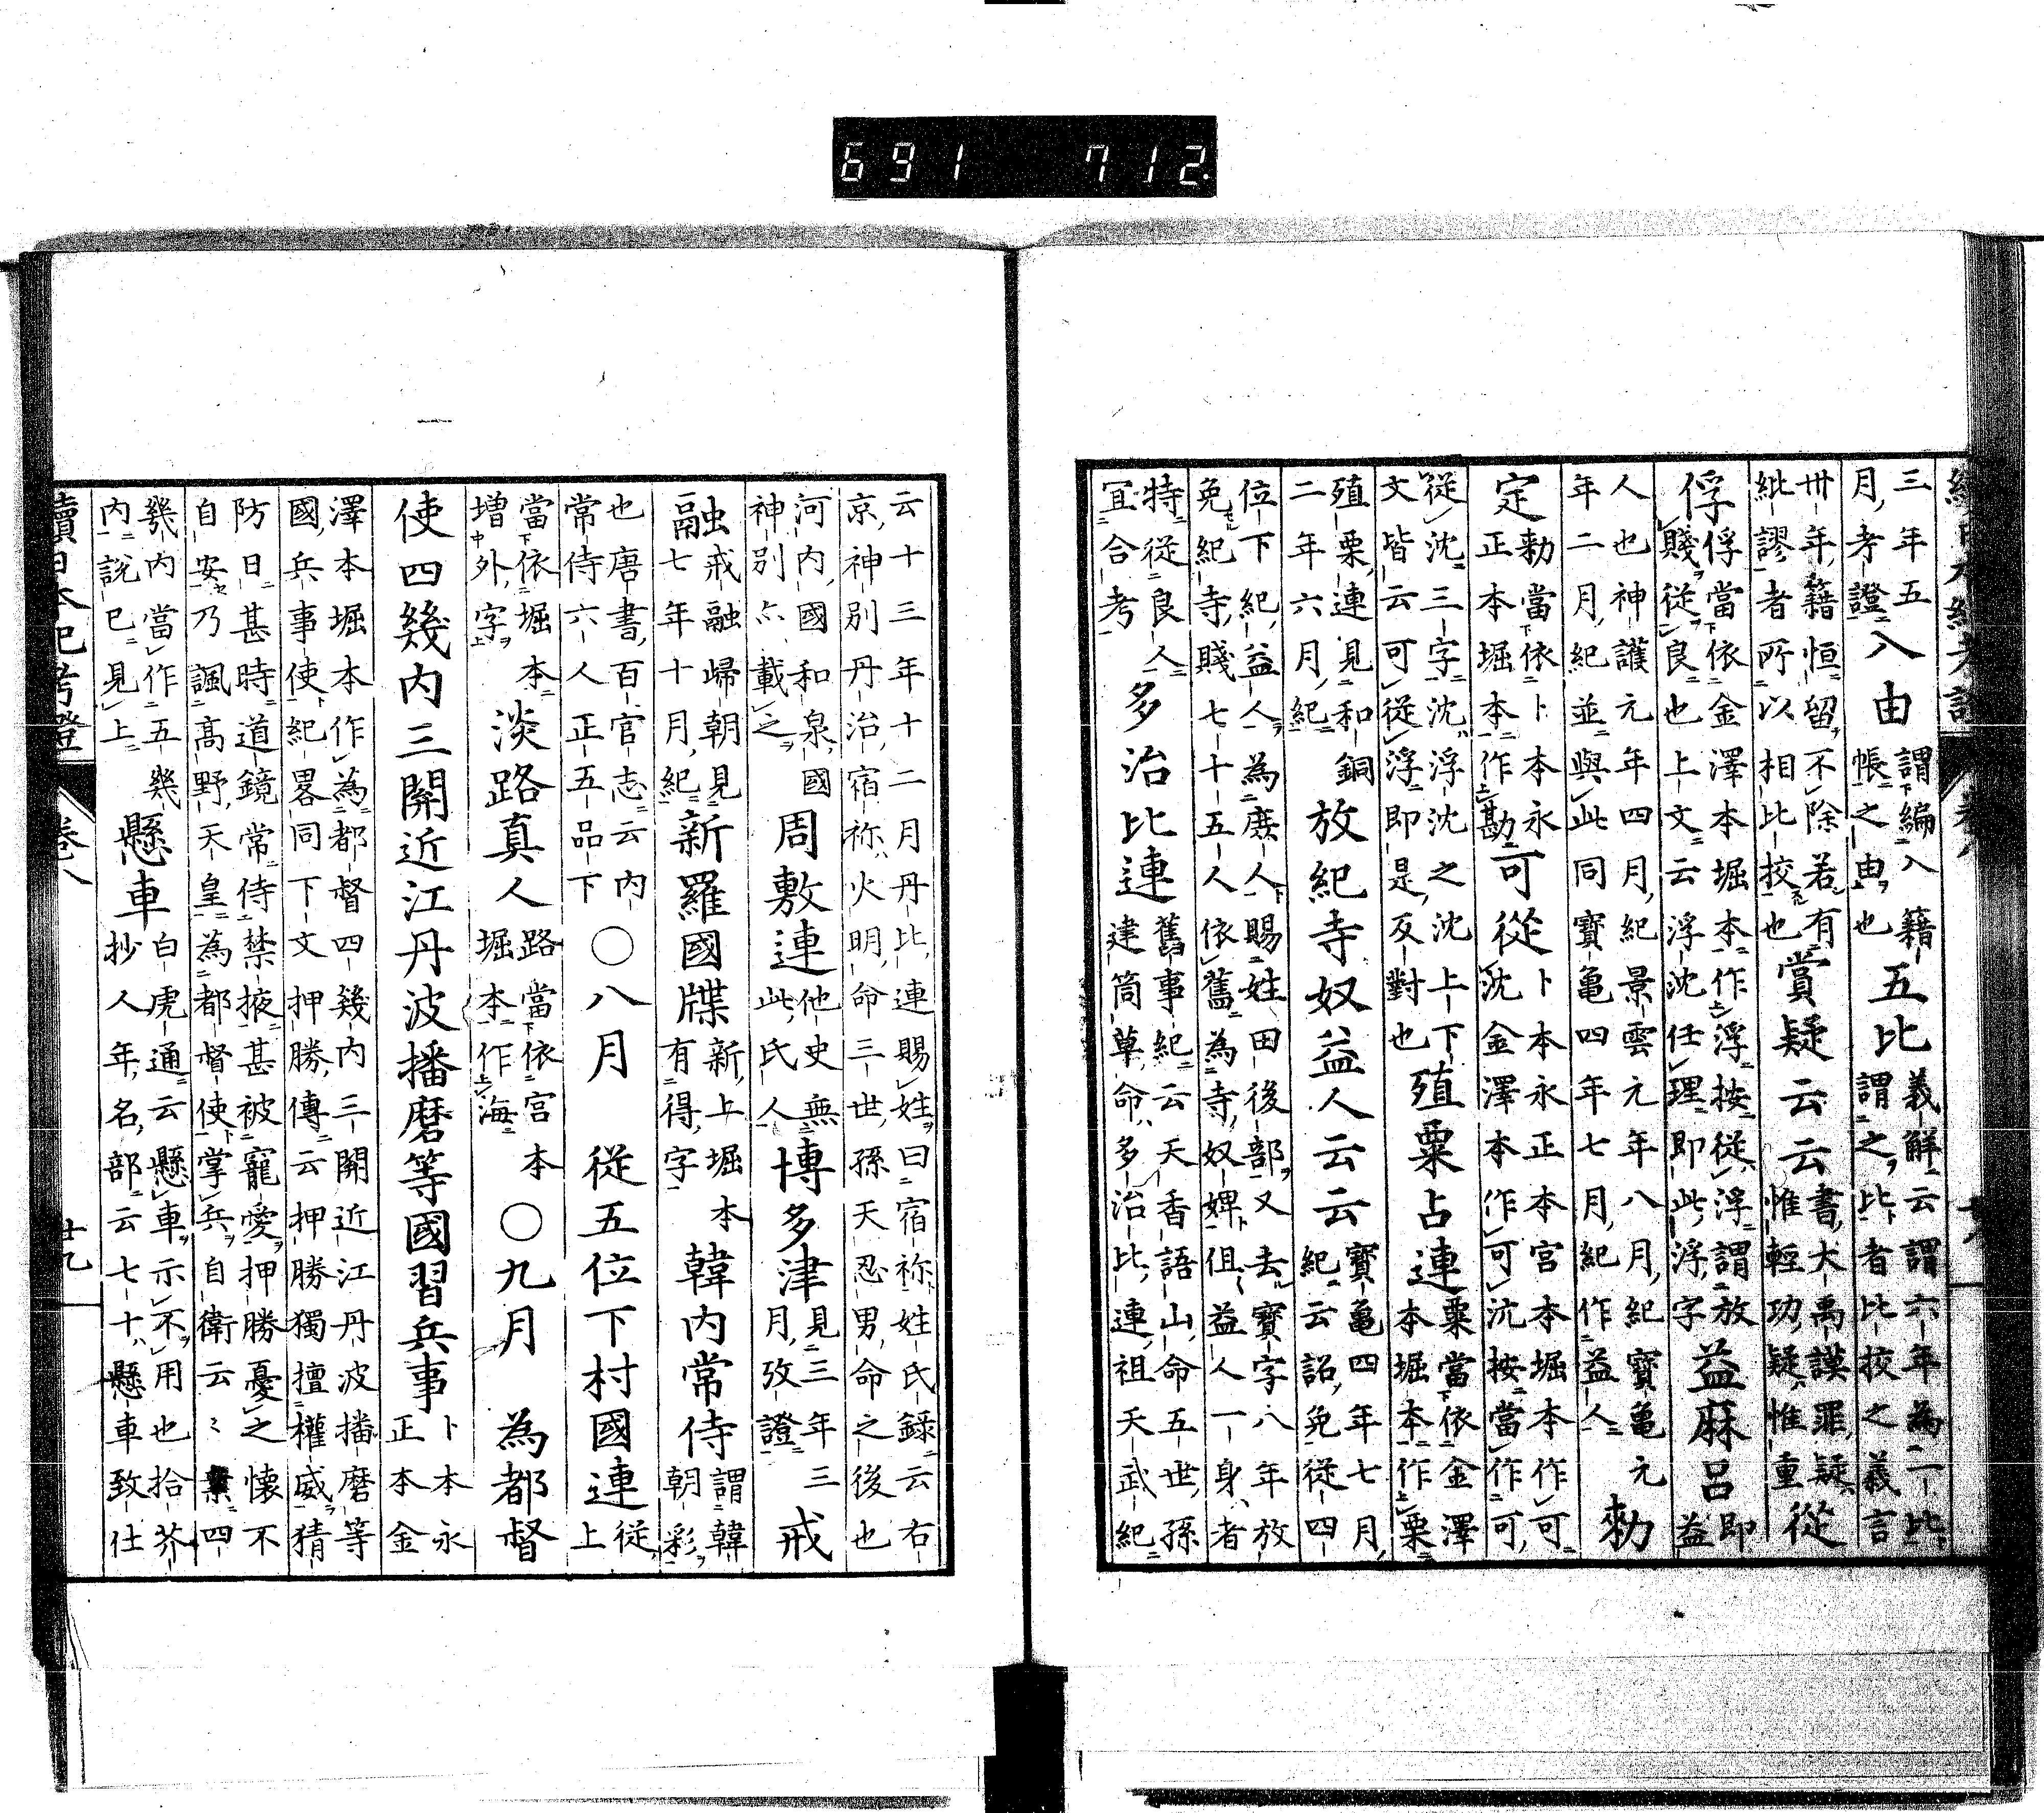 691 712
三年五
月考證
入由
謂編入籍
帳之由也
五比
義解云謂六年為一比
謂之比者比挍之義言
卅年籍恒留不除若有
紕謬者所以相比挍也
賞疑云云
書大禹謨罪疑
惟輕功疑惟重
從
俘
俘當依金澤本堀本作浮按從浮謂放
賤從良也上文云浮沈任理即此浮字
益麻呂
即
益
人也神護元年四月紀景雲元年八月紀寶亀元
年二月紀並與此同寶亀四年七月紀作益人
勅
定
勅當依卜本永
正本堀本作勘
可從
卜本永正本宮本堀本作可
沈金澤本作可沈按當作可
從沈三字沈浮沈之沈上下
文皆云可從浮即是反對也
殖粟占連
粟當依金澤
本堀本作粟
殖粟連見和銅
二年六月紀
放紀寺奴益人云云
寶亀四年七月
紀云詔免從四
位下紀益人為庶人賜姓田後部又去寶字八年放
免紀寺賤七十五人依舊為寺奴婢但益人一身者
特從良人
宜合考
多治比連
舊事紀云天香語山命五世孫
建筒草命多治比連祖天武紀
續日本紀考證 卷八
云十三年十二月丹比連賜姓曰宿祢姓氏録云右
京神別丹治宿祢火明命三世孫天忍男命之後也
河内國和泉國
神別亦載之
周敷連
他史無
此氏人
博多津
見三年三
月攷證
戒
融
戒融歸朝見
七年十月紀
新羅國牒
新上堀本
有得字
韓内常侍
謂韓
朝彩
也唐書百官志云内
常侍六人正五品下
○八月
從五位下村國連
從
上
當依堀本
増外字
淡路真人
路當依宮本
堀本作海
○九月
為都督
使四幾内三關近江丹波播磨等國習兵事
卜本永
正本金
澤本堀本作為都督四幾内三關近江丹波播磨等
國兵事使紀畧同下文押勝傳云押勝獨擅權威猜
防日甚時道鏡常侍禁掖甚被寵愛押勝憂之懐不
自安乃諷高野天皇為都督使掌兵自衛云〻案四
幾内當作五幾
内説已見上
懸車
白虎通云懸車示不用也拾芥
抄人年名部云七十懸車致仕
續日本紀考證 卷八 廿九